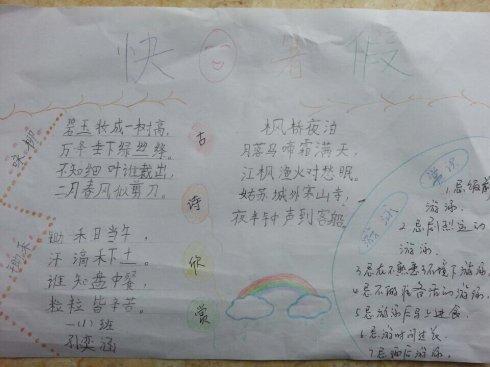 快 暑假
咏柳
碧玉妆成一树高,
万千垂下绿丝绦。
不知细叶谁裁出,
二月春风似剪刀。
锄禾
锄禾日当午,
汗滴禾下土。
谁知盘中餐,
粒粒皆辛苦。
一(1)班
孙奕涵
古
诗
欣
赏
枫桥夜泊
月落乌啼霜满天,
江枫渔火对愁眠。
姑苏城外寒山寺,
夜半钟声到客船。
游泳
常识
1.忌饭前
游泳.
2.忌剧烈运动
游泳.
3忌在不熟悉环境下游泳.
4忌不做准备活动游泳.
5忌游泳后马上进食.
6忌游时间过长
7忌 后游泳.